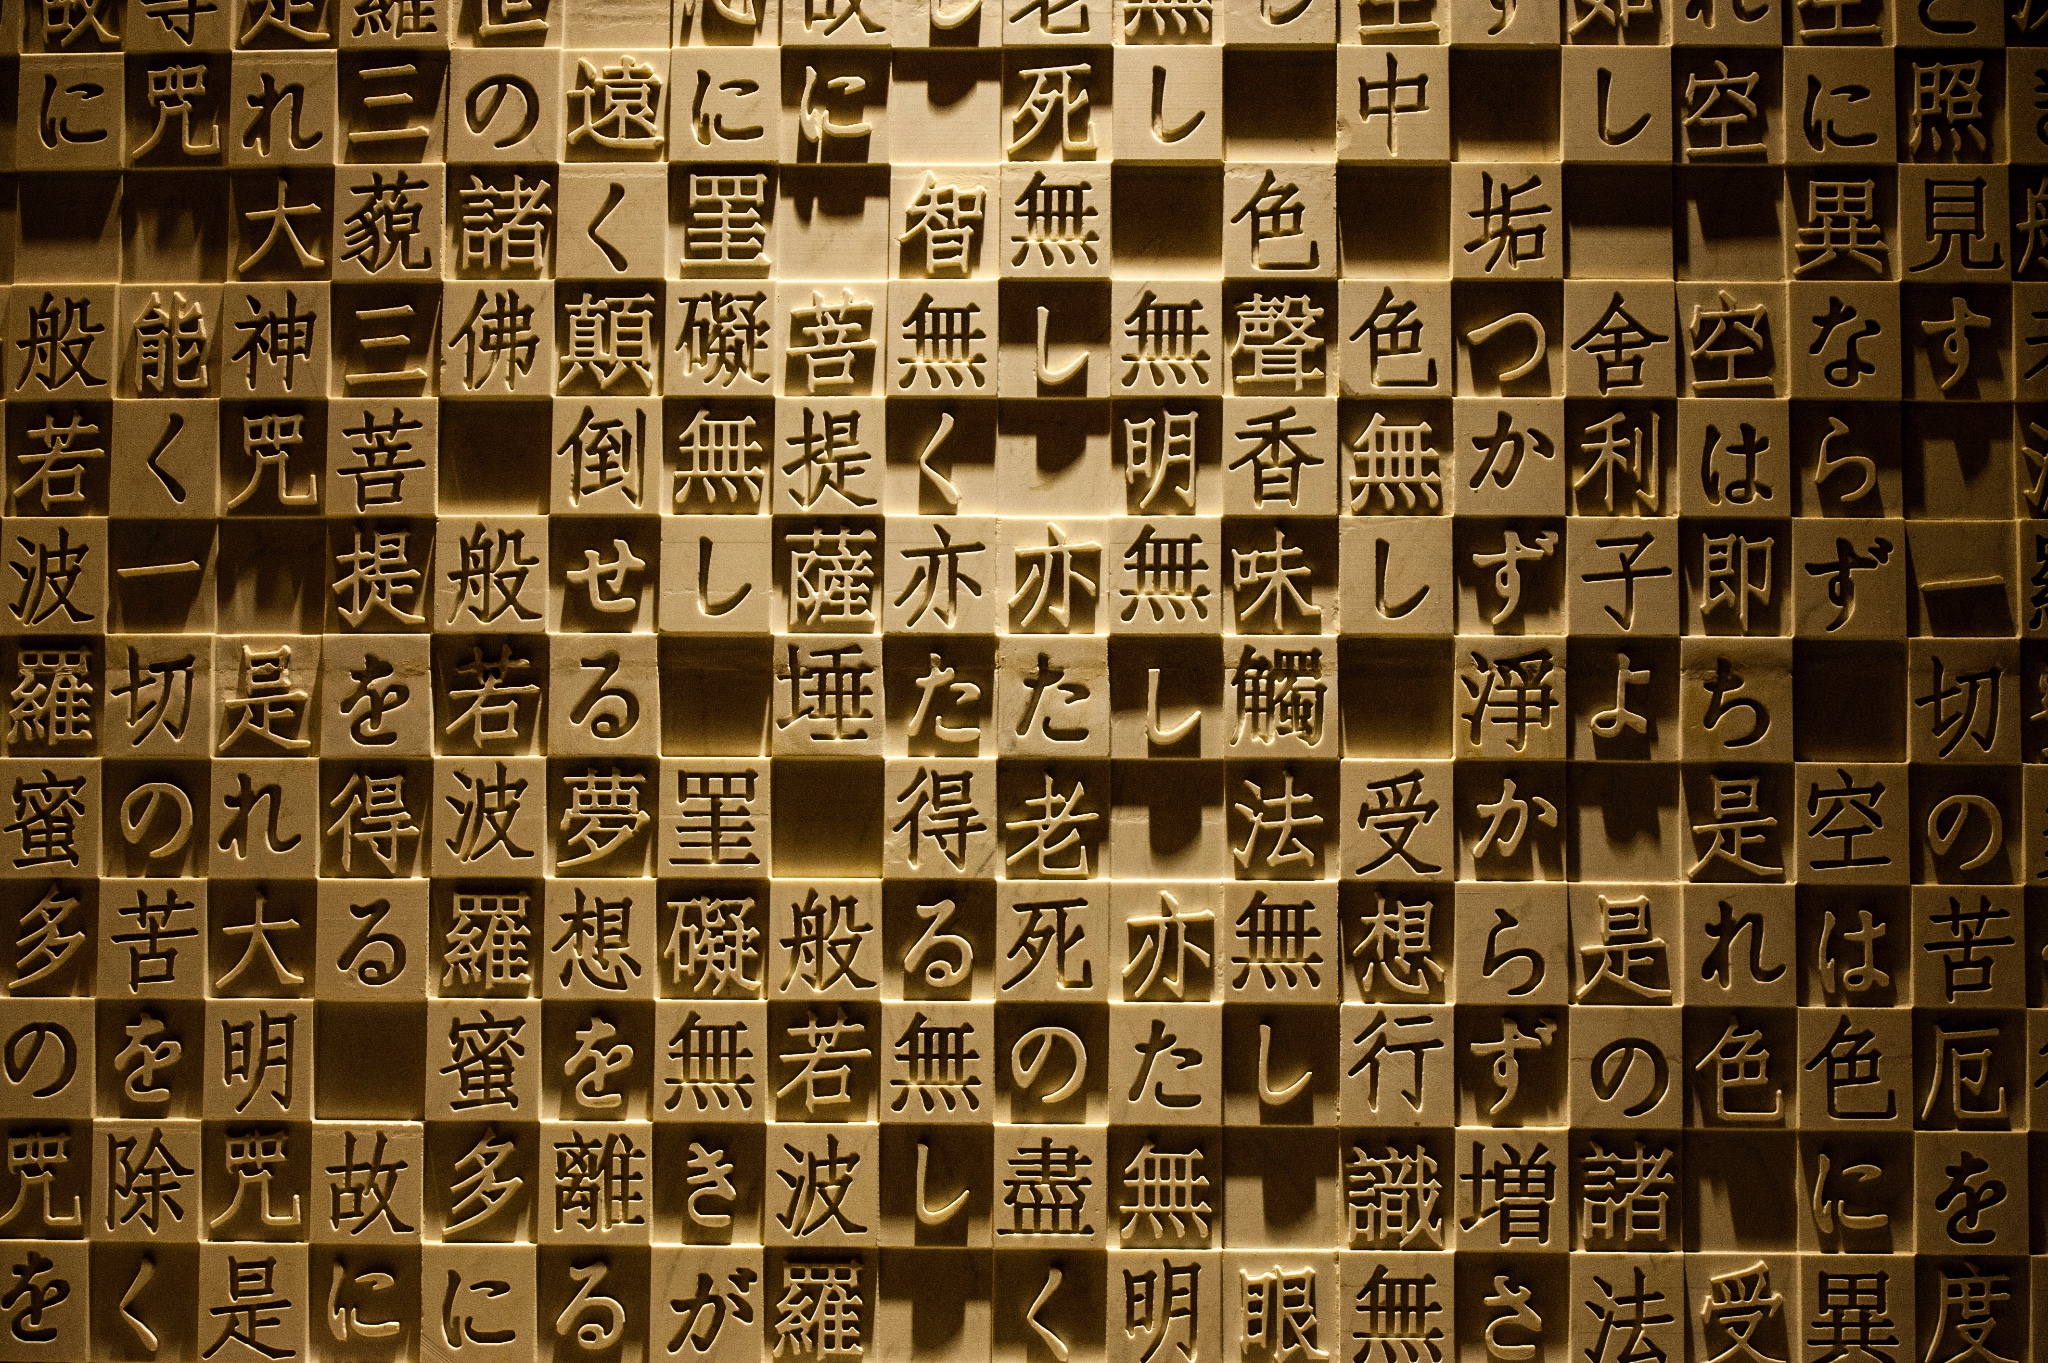 と照見す 一切の苦厄を度
空に異ならず 空は色に異
れ空 空は即ち是れ色 受
如し 舍利子よ 是の諸法
ず 垢つかず淨からず増さ
空中 色無し 受想行識無
し 色聲香味觸法無し 眼
無し 無明無し 亦た無明
老死無し 亦た老死の盡く
し 智無く亦た得る無し
故に 菩提薩埵 般若波羅
心に罣礙無し 罣礙無きが
遠く顛倒せる夢想を離る
世の諸佛 般若波羅蜜多に
羅三藐三菩提を得る 故に
是れ大神咒 是れ大明咒是
等咒 能く一切の苦を除く
故に 般若波羅蜜多の咒を